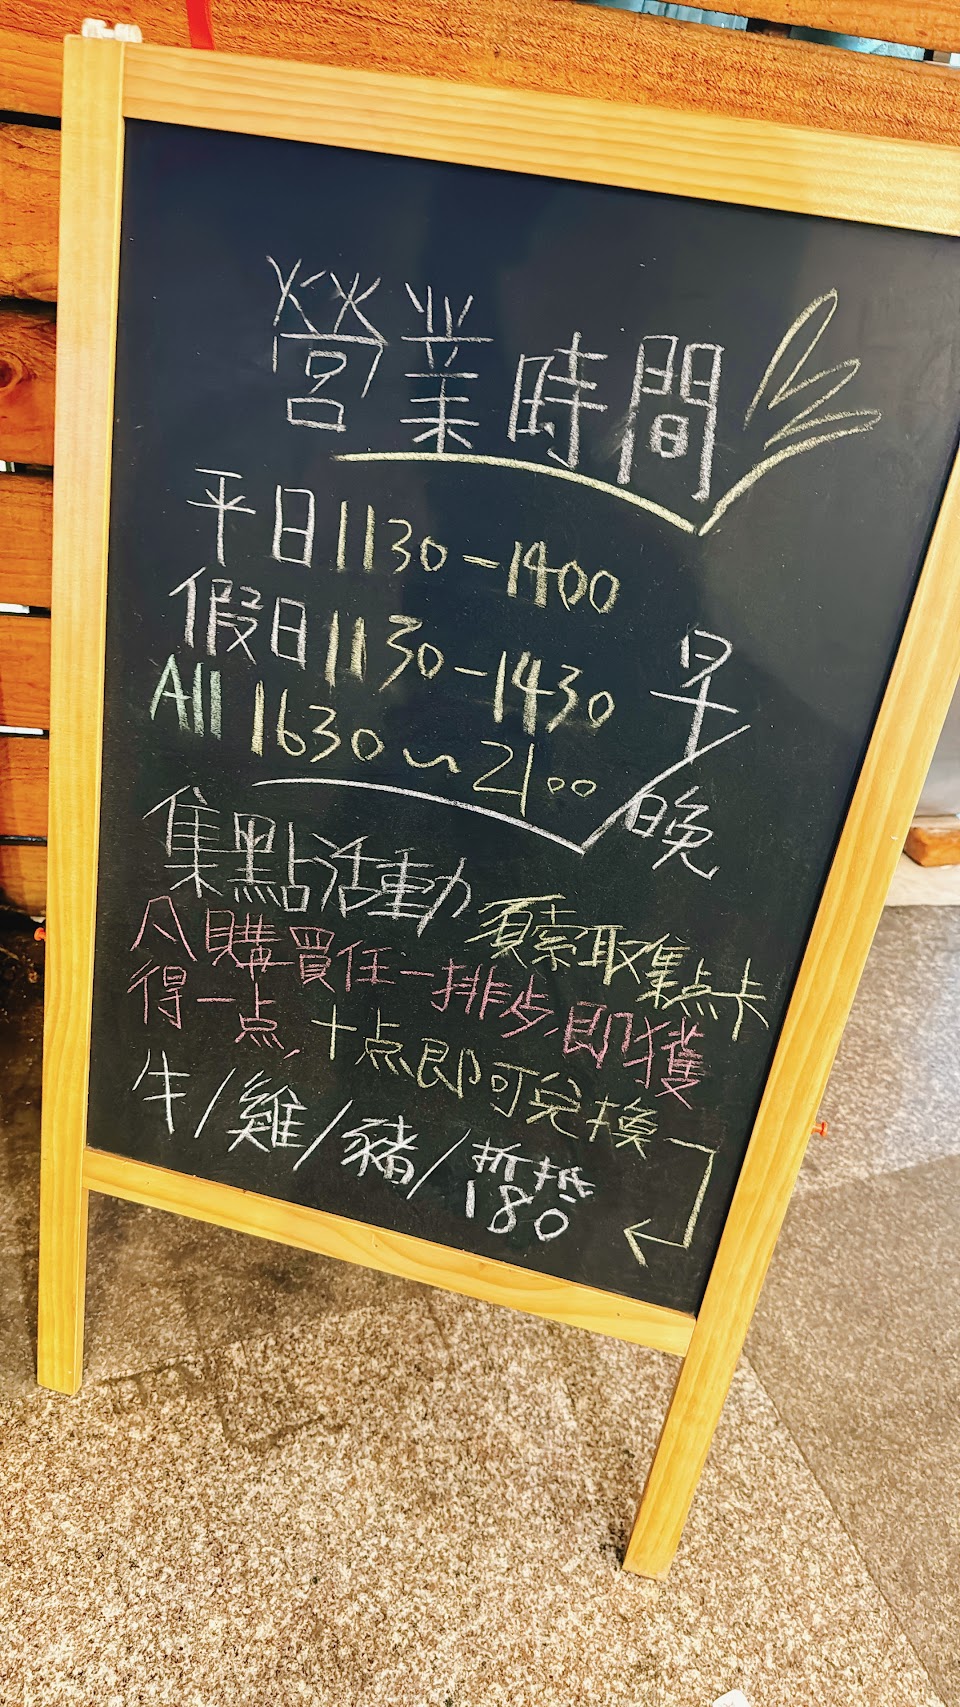 營業時間
平日1130-1400
假日1130-1430 早
All 1630~2100 晚
集點活動 須索取集點卡
購買任一排步,即獲
得一点,十点即可兌換
牛/雞/豬/折抵
180